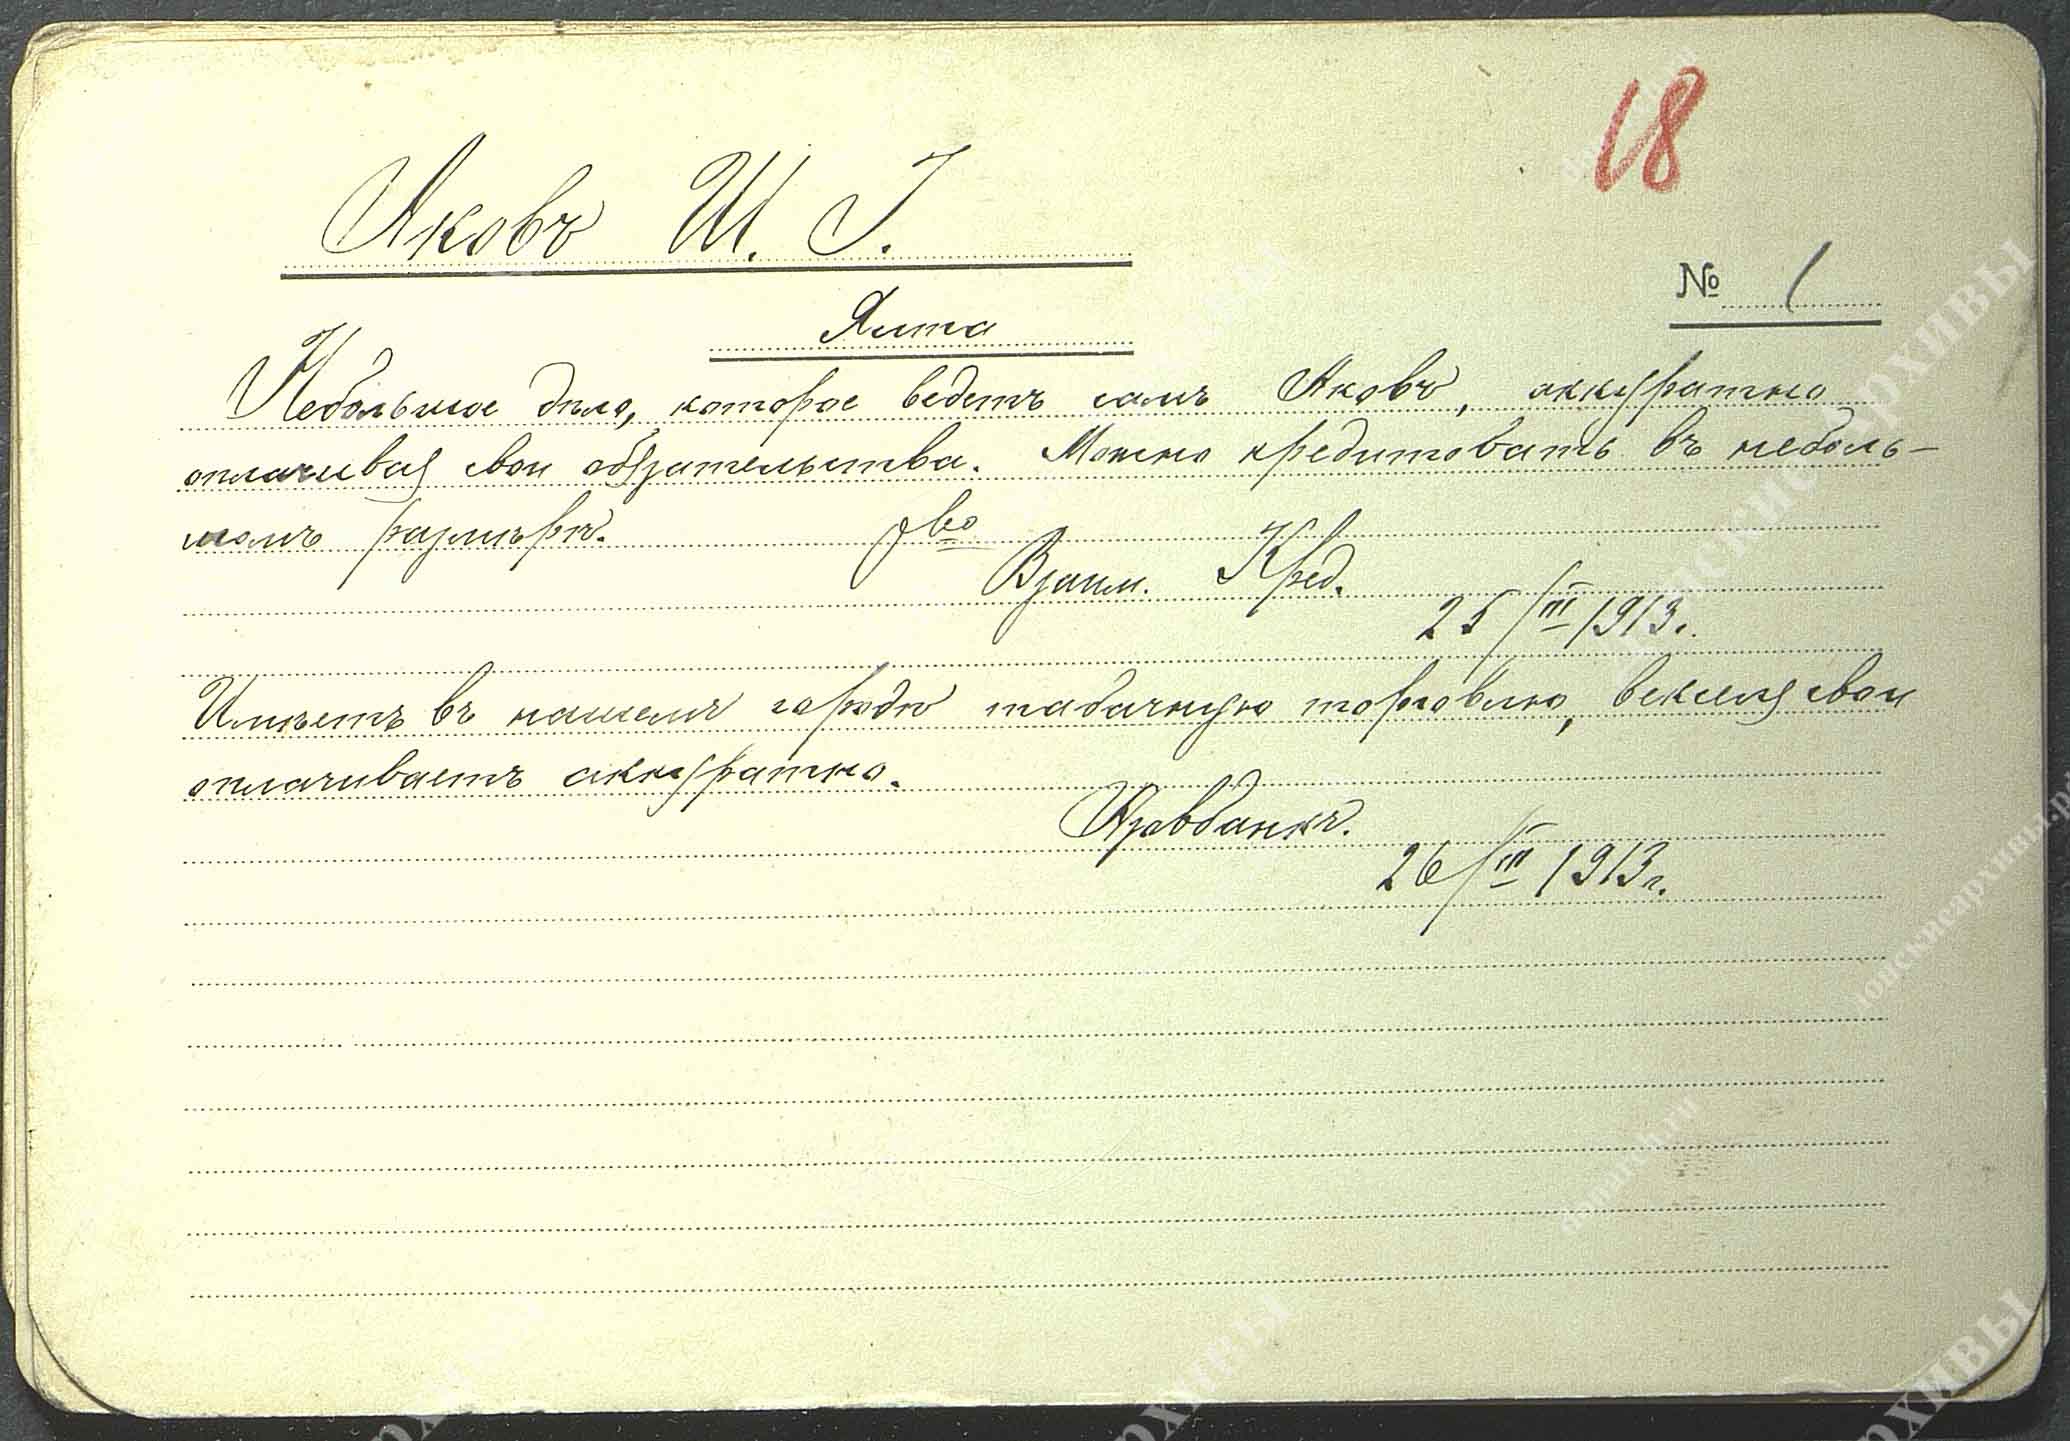 18
Аковъ Ш. І.
№ 1
Ялта
Небольшое дѣло, которое ведетъ самъ Аковъ, аккуратно
оплачивая свои обязательства. Можно кредитовать въ неболь-
шомъ размѣрѣ.
О-во
Взаим. Кред.
25/III 1913 г.
Имѣетъ въ нашемъ городѣ табачную торговлю, векселя свои
оплачиваетъ аккуратно.
Азовбанкъ.
26/III 1913 г.